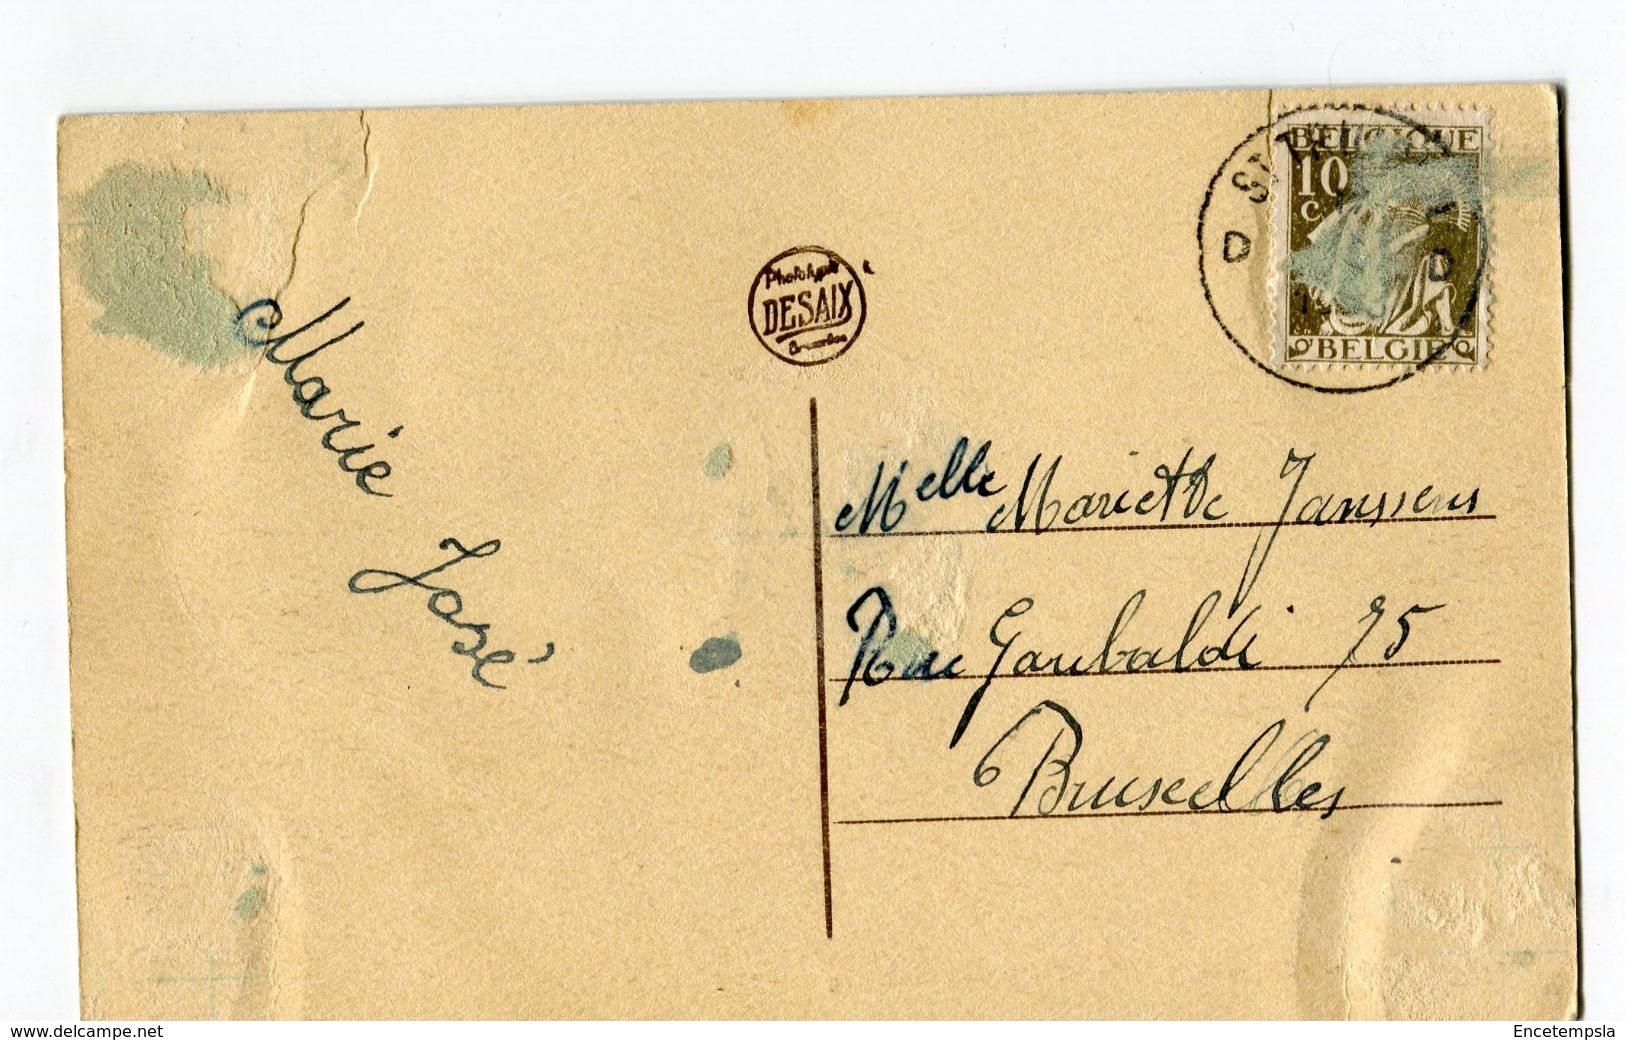 BELGIQUE
10
C
BELGIE
D
D
DESAIX
Marie
José
Melle Mariette Janssens
Rue Garibaldi 75
Bruxelles
www.delcampe.net
Encetempsla